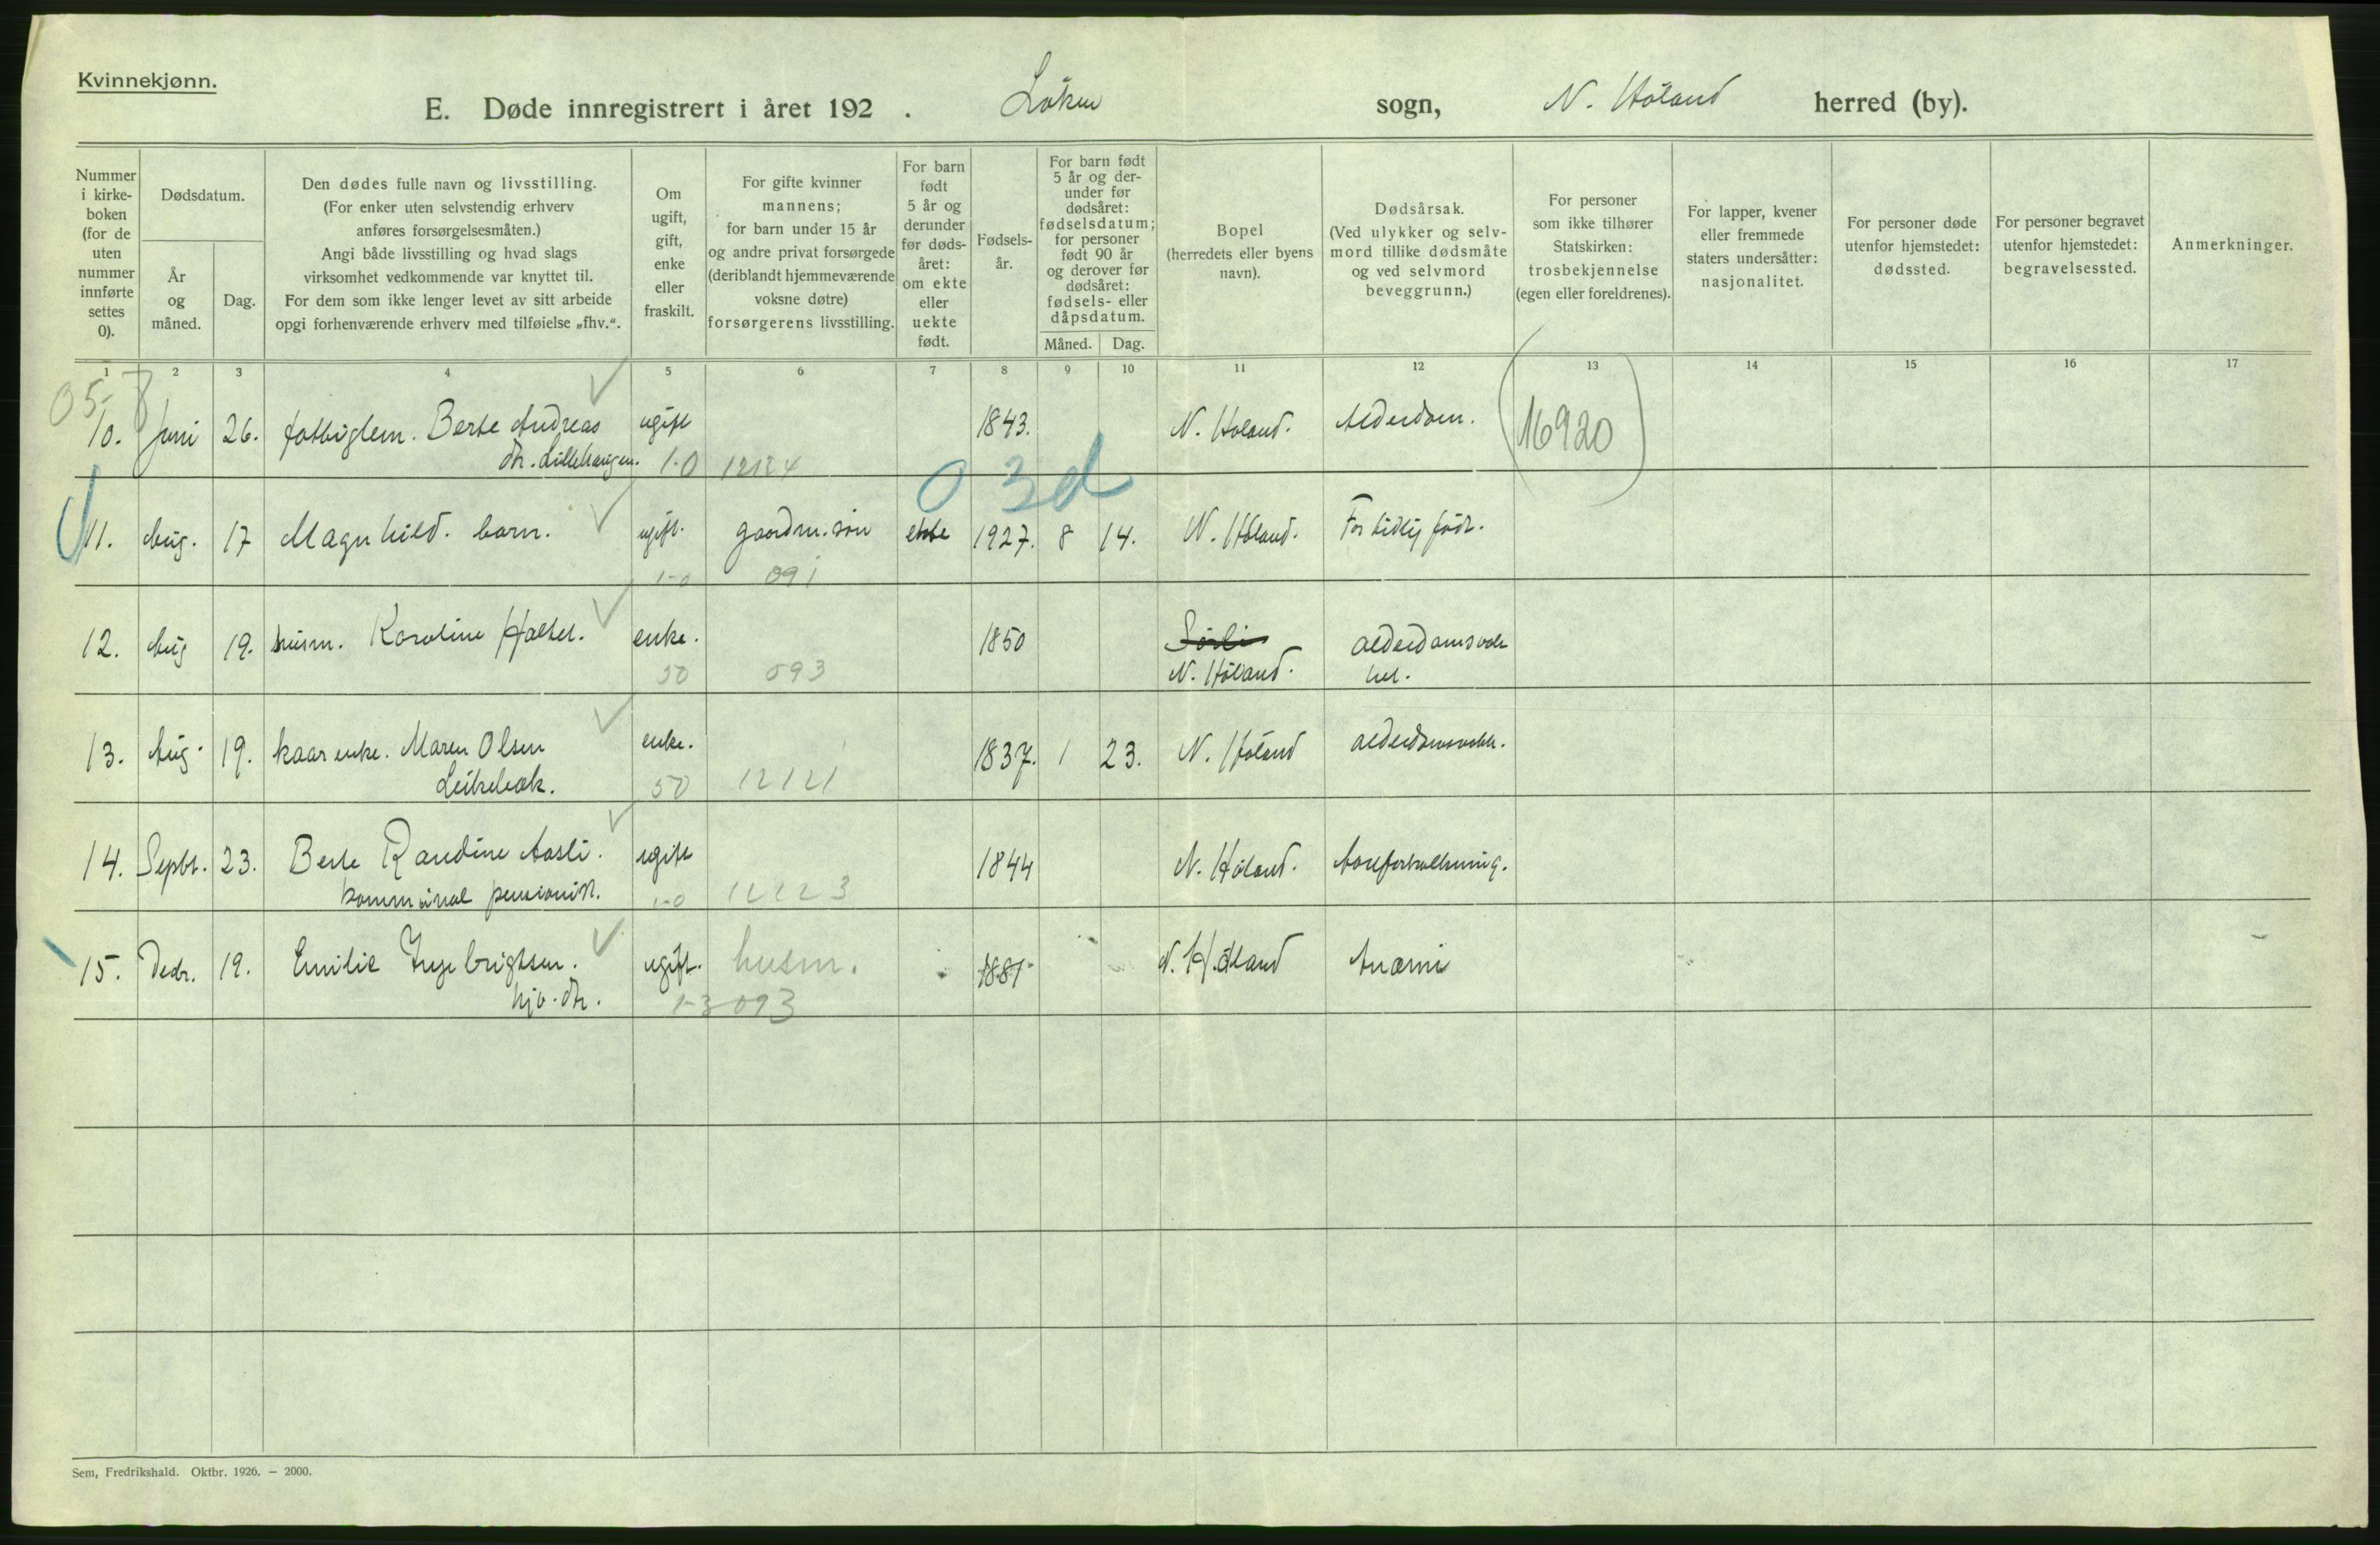 Kvinnekjønn.
E. Døde innregistrert i året 192 . Löken sogn, N. Höland herred (by).
Nummer i kirke-boken (for de uten nummer innførte settes 0).
Dødsdatum.
År og måned.
Dag.
Den dødes fulle navn og livsstilling.
(For enker uten selvstendig erhverv
anføres forsørgelsesmåten.)
Angi både livsstilling og hvad slags
virksomhet vedkommende var knyttet til.
For dem som ikke lenger levet av sitt arbeide
opgi forhenværende erhverv med tilføielse „fhv.“.
Om ugift, gift, enke eller fraskilt.
For gifte kvinner
mannens;
for barn under 15 år
og andre privat forsørgede
(deriblandt hjemmeværende
voksne døtre)
forsørgerens livsstilling.
For barn født 5 år og derunder før døds-året: om ekte eller uekte født.
Fødsels-år.
For barn født 5 år og der-under før dødsåret: fødselsdatum; for personer født 90 år og derover før dødsåret: fødsels- eller dåpsdatum.
Måned. Dag.
Bopel
(herredets eller byens
navn).
Dødsårsak.
(Ved ulykker og selv-
mord tillike dødsmåte
og ved selvmord
beveggrunn.)
For personer
som ikke tilhører
Statskirken:
trosbekjennelse
(egen eller foreldrenes).
For lapper, kvener
eller fremmede
staters undersåtter:
nasjonalitet.
For personer døde
utenfor hjemstedet:
dødssted.
For personer begravet
utenfor hjemstedet:
begravelsessted.
Anmerkninger.
1 2 3 4 5 6 7 8 9 10 11 12 13 14 15 16 17
10. Juni 26. fattiglem. Berte Andreas ugift 1843. N. Höland. Alderdom. 16920
dtr. Lillehaugen. 1-0 12124
0 3d
11. Aug. 17 Magnhild. barn. ugift. gaardm. sön ekte 1927. 8 14. N. Höland. For tidlig födt.
1-0 091
12. Aug 19. husm. Karoline enke. 1850 Sörli alderdomsvak
50 093 N. Höland. hel.
13. Aug. 19. kaarenke. Maren Olsen enke. 1837. 1 23. N. Höland alderdomsvakh.
50 12121
14. Septbr. 23. Berte Randine Aasli. ugift 1844 N. Höland. Aareforkalkning.
kommunal pensionist. 1-0 12123
15. Decbr. 19. Emilie Ingebrigtsen. ugift. husm. 1881 N. Höland Anæmi
hjv. dtr. 1-3 093
Sem, Fredrikshald. Oktbr. 1926. – 2000.